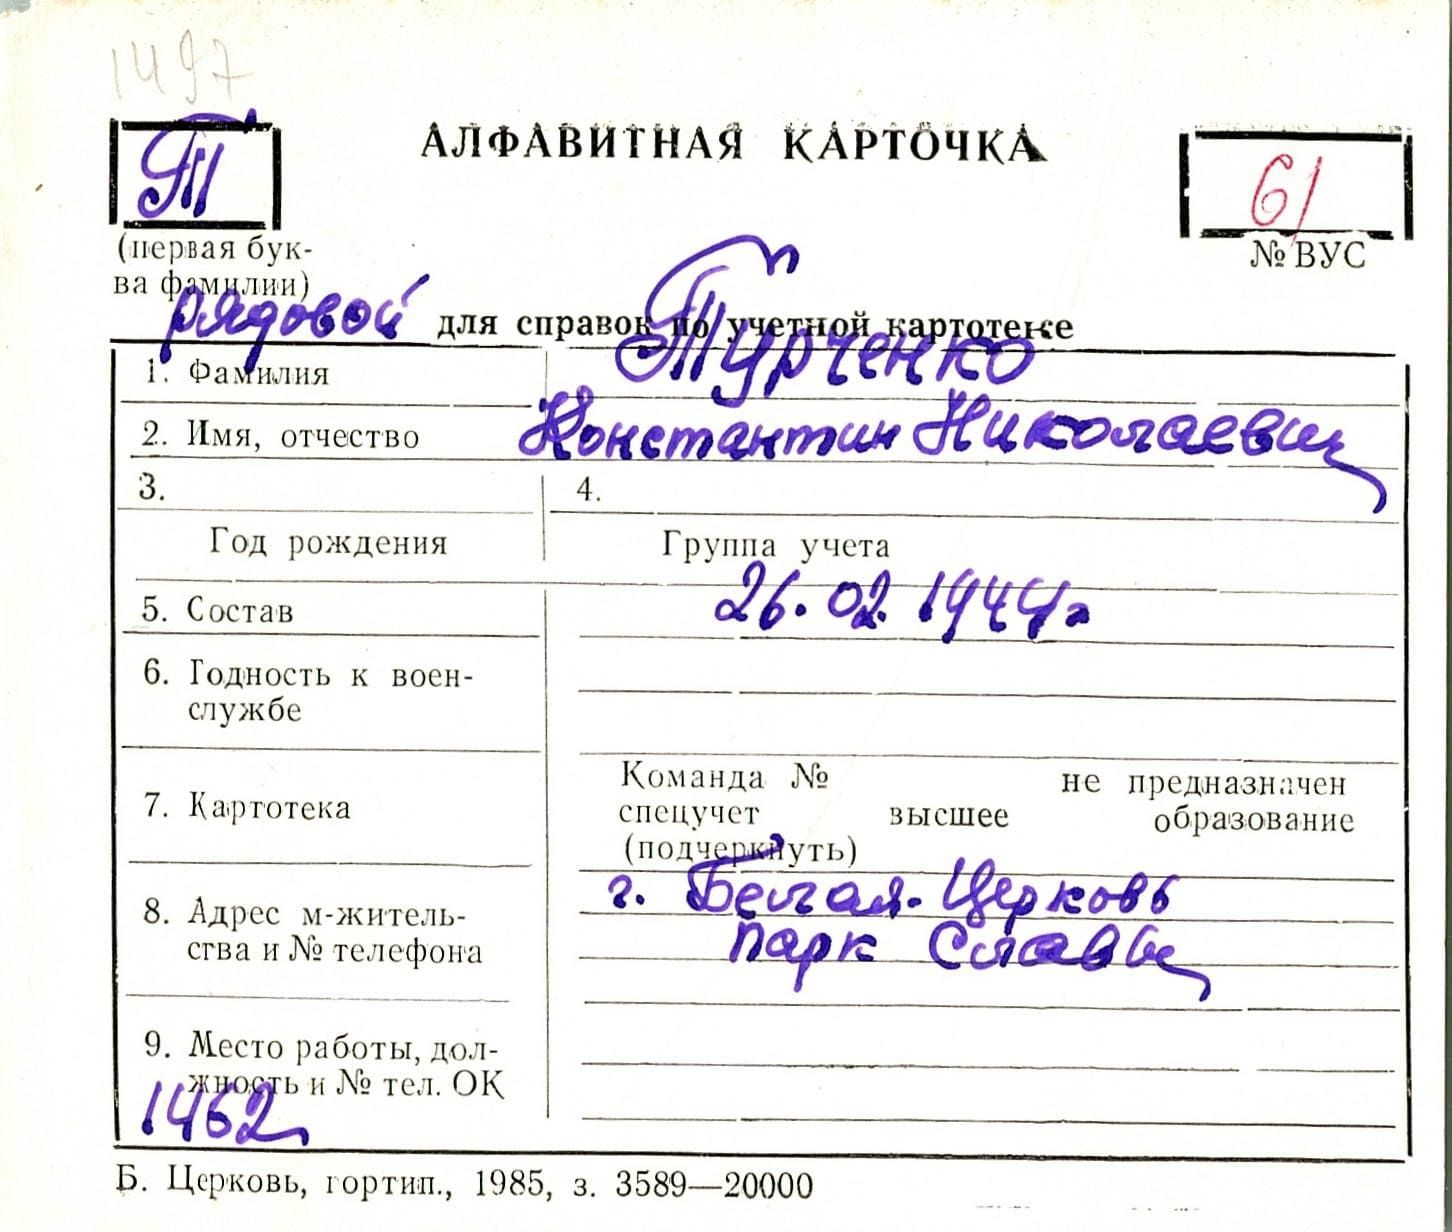 1497
Т
АЛФАВИТНАЯ КАРТОЧКА
61
(первая бук-
ва фамилии)
№ ВУС
рядовой для справок по учетной картотеке
1. Фамилия Турченко
2. Имя, отчество Константин Николаевич
3. 4.
Год рождения Группа учета
5. Состав 26.02.1944г
6. Годность к воен-
службе
7. Картотека
Команда № не предназначен
спецучет высшее образование
(подчеркнуть)
8. Адрес м-житель-
ства и № телефона
г. Белая-Церковь
парк Славы
9. Место работы, дол-
жность и № тел. ОК
1462
Б. Церковь, гортип., 1985, з. 3589—20000